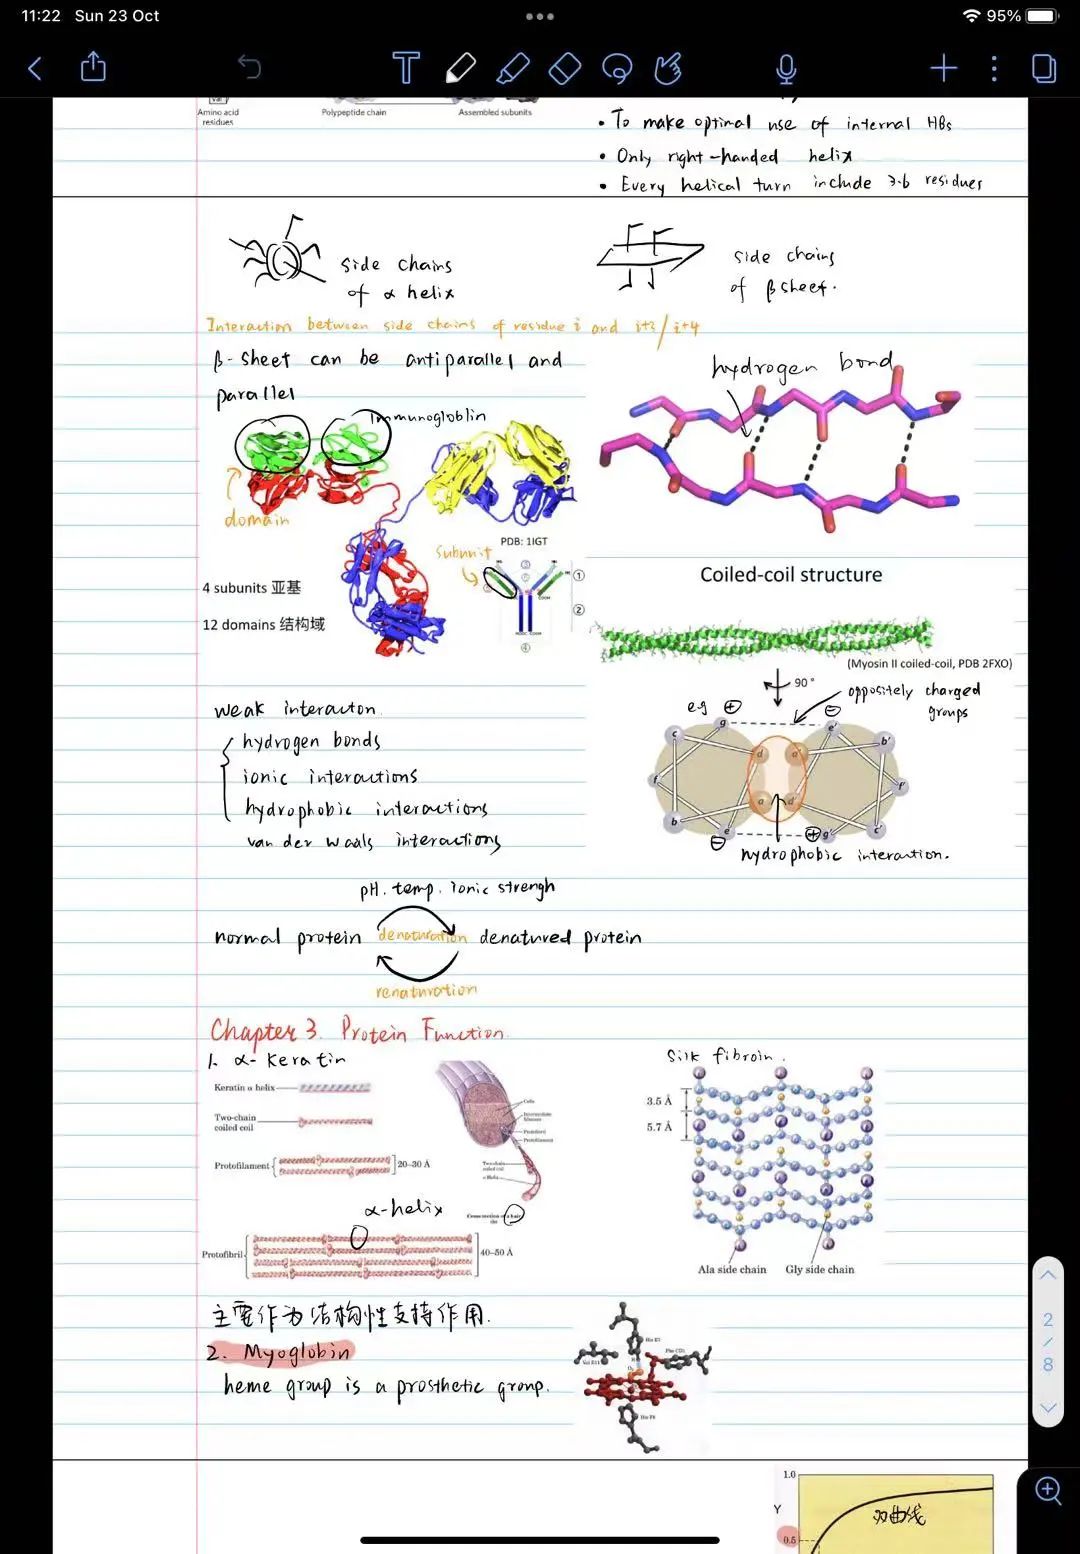 11:22 Sun 23 Oct
95%
Val
Amino acid
residues
Polypeptide chain
Assembled subunits
• To make optimal use of internal HBs
• Only right-handed helix
• Every helical turn include 3.6 residues
side chains
of α helix
side chains
of β sheet.
Interaction between side chains of residue i and i+3/i+4
β-sheet can be antiparallel and
parallel
hydrogen bond
Immunogloblin
domain
PDB: 1IGT
Subunit
4 subunits 亚基
12 domains 结构域
①
②
③
④
HOOC COOH
COOH
Coiled-coil structure
(Myosin II coiled-coil, PDB 2FXO)
90°
oppositely charged
groups
eg ⊕
⊖
g e'
c b'
d a'
f f'
a d'
b c'
e g'
⊖ ⊕
hydrophobic interaction.
weak interacton.
hydrogen bonds
ionic interactions
hydrophobic interactions
van der waals interactions
pH. temp. ionic strengh
normal protein denaturation denatured protein
renaturation
Chapter 3. Protein Function.
1. α-keratin
Silk fibroin.
Keratin α helix
Two-chain
coiled coil
Protofilament
20–30 Å
Cells
Intermediate
filament
Protofibril
Protofilament
Two-chain
coiled coil
α Helix
Cross section of a hair
3.5 Å
5.7 Å
α-helix
Protofibril
40–50 Å
Ala side chain
Gly side chain
主要作为结构性支持作用.
2. Myoglobin
heme group is a prosthetic group.
His E7
Phe CD1
Val E11
O₂
His F8
2
/
8
1.0
Y
0.5
双曲线